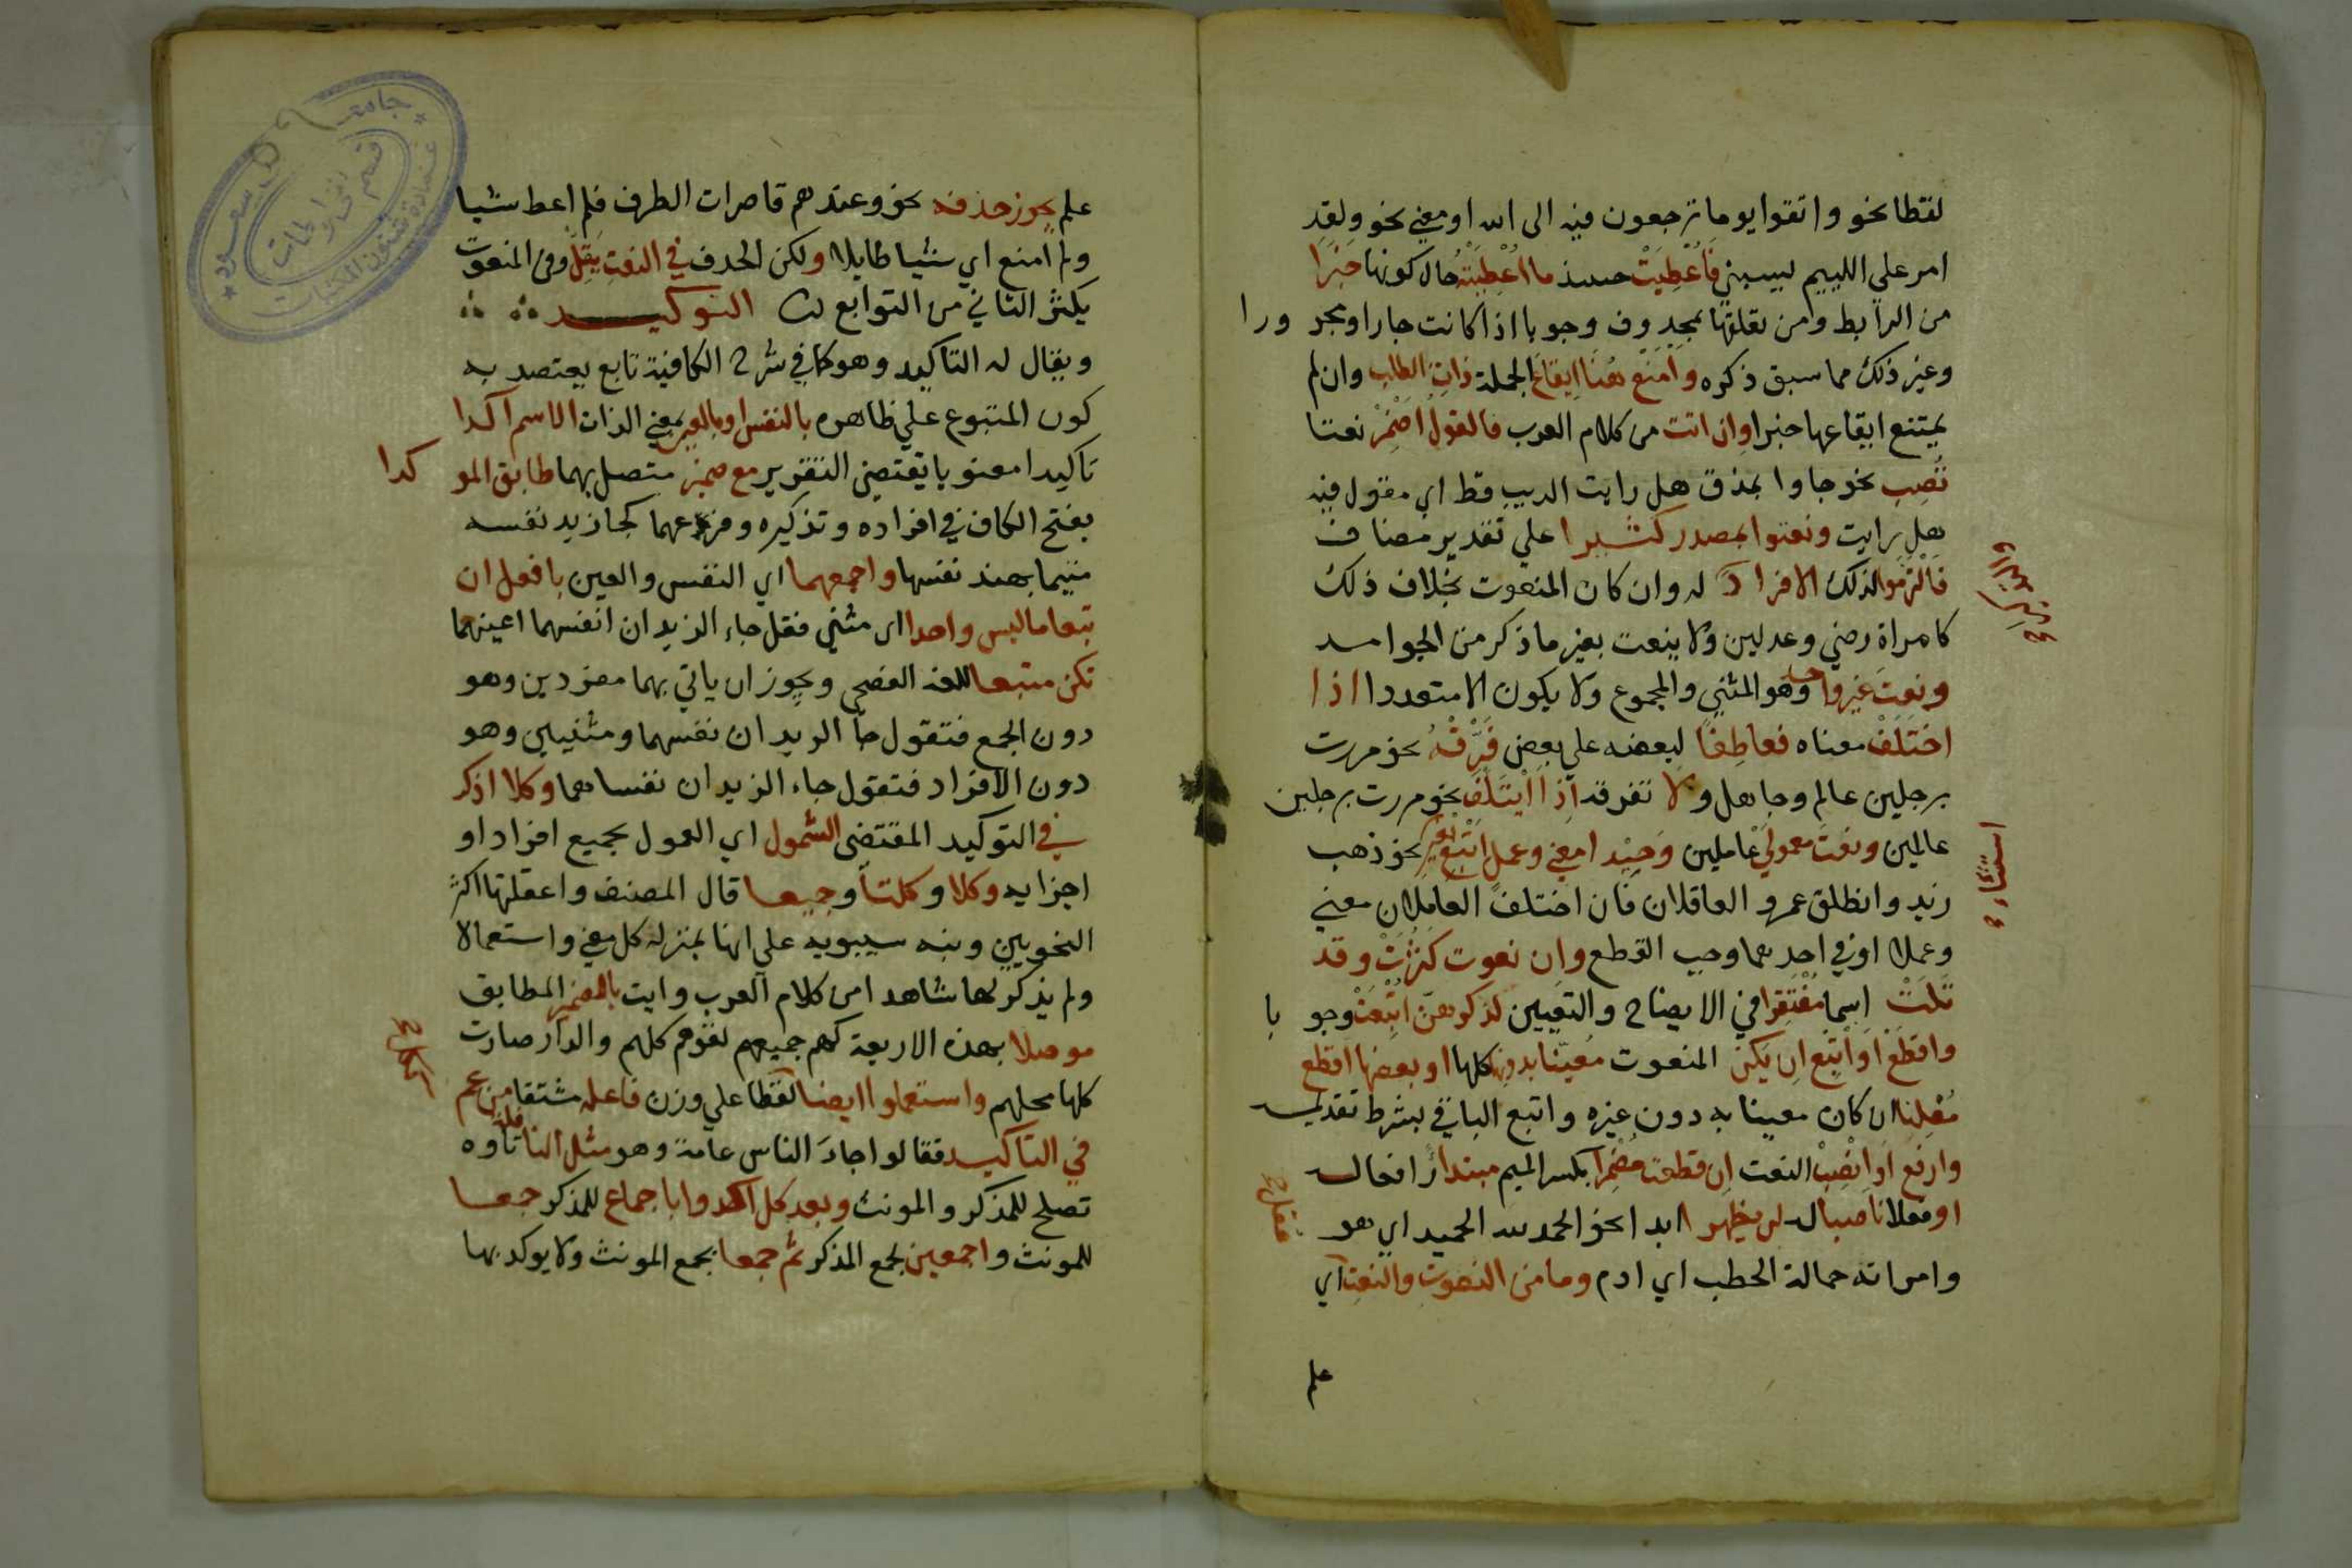 لفظا نحو واتقوا يوما ترجعون فيه الى الله او معني نحو ولقد
امر علي الليم يسبني فَأُعْطِيَتْ حينيذ ما اُعْطِيَتْهُ حال كونها خَبَرَا
من الرابط ومن تعلقها بمحذوف وجوبا اذا كانت جارا ومجرورا
وغير ذلك مما سبق ذكره وامنع هُنَا ايقاعَ الجملة ذاتِ الطلب وان لم
يمتنع ايقاعها خبرا وان اتت من كلام العرب فالقول اَضْمِرْ نعتا
نُصِبِ نحو جاوا بمذق هل رايت الديب قط اي مقول فيه
هل رايت ونعتوا بمصدر كثيرا علي تقدير مضاف
فَالْتزموا لذلك الافرادَ له وان كان المنعوت بخلاف ذلك
كامراة رضي وعدلين ولا ينعت بغير ما ذكر من الجوامد
ونعتَ غير واحد وهو المثني والمجموع ولا يكون الا متعددا اذا
اختَلَفْ معناه فعاطِفًا لبعضه علي بعض فَرِّقْهُ نحو مررت
برجلين عالم وجاهل ولا تفرقه اذا ايْتَلَفْ نحو مررت برجلين
عالمين ونعتَ معموليْ عاملين وَحِيْدا معني وعمل اَتْبِعْ بغير نحو ذهب
زيد وانطلق عمرو العاقلان فان اختلف العاملان معني
وعملا او في احدهما وجب القطع وان نعوت كَثُرَتْ وقد
تَلَتْ اسما مُفْتَقِرا في الايضاح والتعيين لذكرهن اُتْبِعَتْ وجوبا
واقطَعْ اوَ اتْبِع اِن يَكن المنعوت مُعيّنا بدونها كلها او بعضها اقطع
مُعْلِنا ان كان معينا به دون غيره واتبع الباقي بشرط تقديمه
وارفع اوَ انْصِبْ النعت اِن قطعت مُضْمِرَا بكسر الميم مبتدأ رافعا له
او فعلا ناصبا له لن يظهرا ابدا نحو الحمد لله الحميد اي هو
وامراته حمالة الحطب اي اذم وما من النعوت والنعت اي
علم
علم يجوز حذفه نحو وعندهم قاصرات الطرف فلم اعط شيا
ولم امنع اي شيئا طايلا ولكن الحدف في النعتِ يَقِلّ وفي المنعوت
يكثر الثاني من التوابع التوكيد
ويقال له التاكيد وهو كما في شرح الكافية تابع يعتصد به
كون المتبوع علي ظاهره بالنفس او بالعين بمعني الذات الاسم اكدا
تاكيدا معنويا يقتضي التقرير مع ضمير متصل بهما طابق الموكدا
بفتح الكاف في افراده وتذكيره وفروعهما كجا زيد نفسه
متيما بهند نفسها واجمعهما اي النفس والعين بافعل ان
تبعا ما ليس واحدا اي مثني فقل جاء الزيدان انفسهما اعينهما
تكن متبعا للغة الفصحي ويجوز ان ياتي بهما مفردين وهو
دون الجمع فتقول جاَ الزيدان نفسهما ومثنيين وهو
دون الافراد فتقول جاء الزيدان نفساهما وكلا اذكر
في التوكيد المقتضي الشمول اي العموم لجميع افراد او
اجزايه وكلا وكلتا وجميعا قال المصنف واغفلها اكثر
النحويين ونبه سيبويه علي انها بمنزله كل معني واستعمالا
ولم يذكر لها شاهدا من كلام العرب وايت بالضمير المطابق
موصلا بهذه الاربعة كهم جميعهم لقوهم كلهم والدار صارت
كلها محلهم واستعملوا ايضا لفظا علي وزن فاعله مشتقا من عم
في التاكيد فقالوا جاءَ الناس عامة وهو مثل النافلة تاوه
تصلح للمذكر والمونث وبعد كل اكدوا باجماع للمذكر جمعا
للمونث واجمعين لجمع المذكر ثم جمعا بجمع المونث ولا يوكد بها